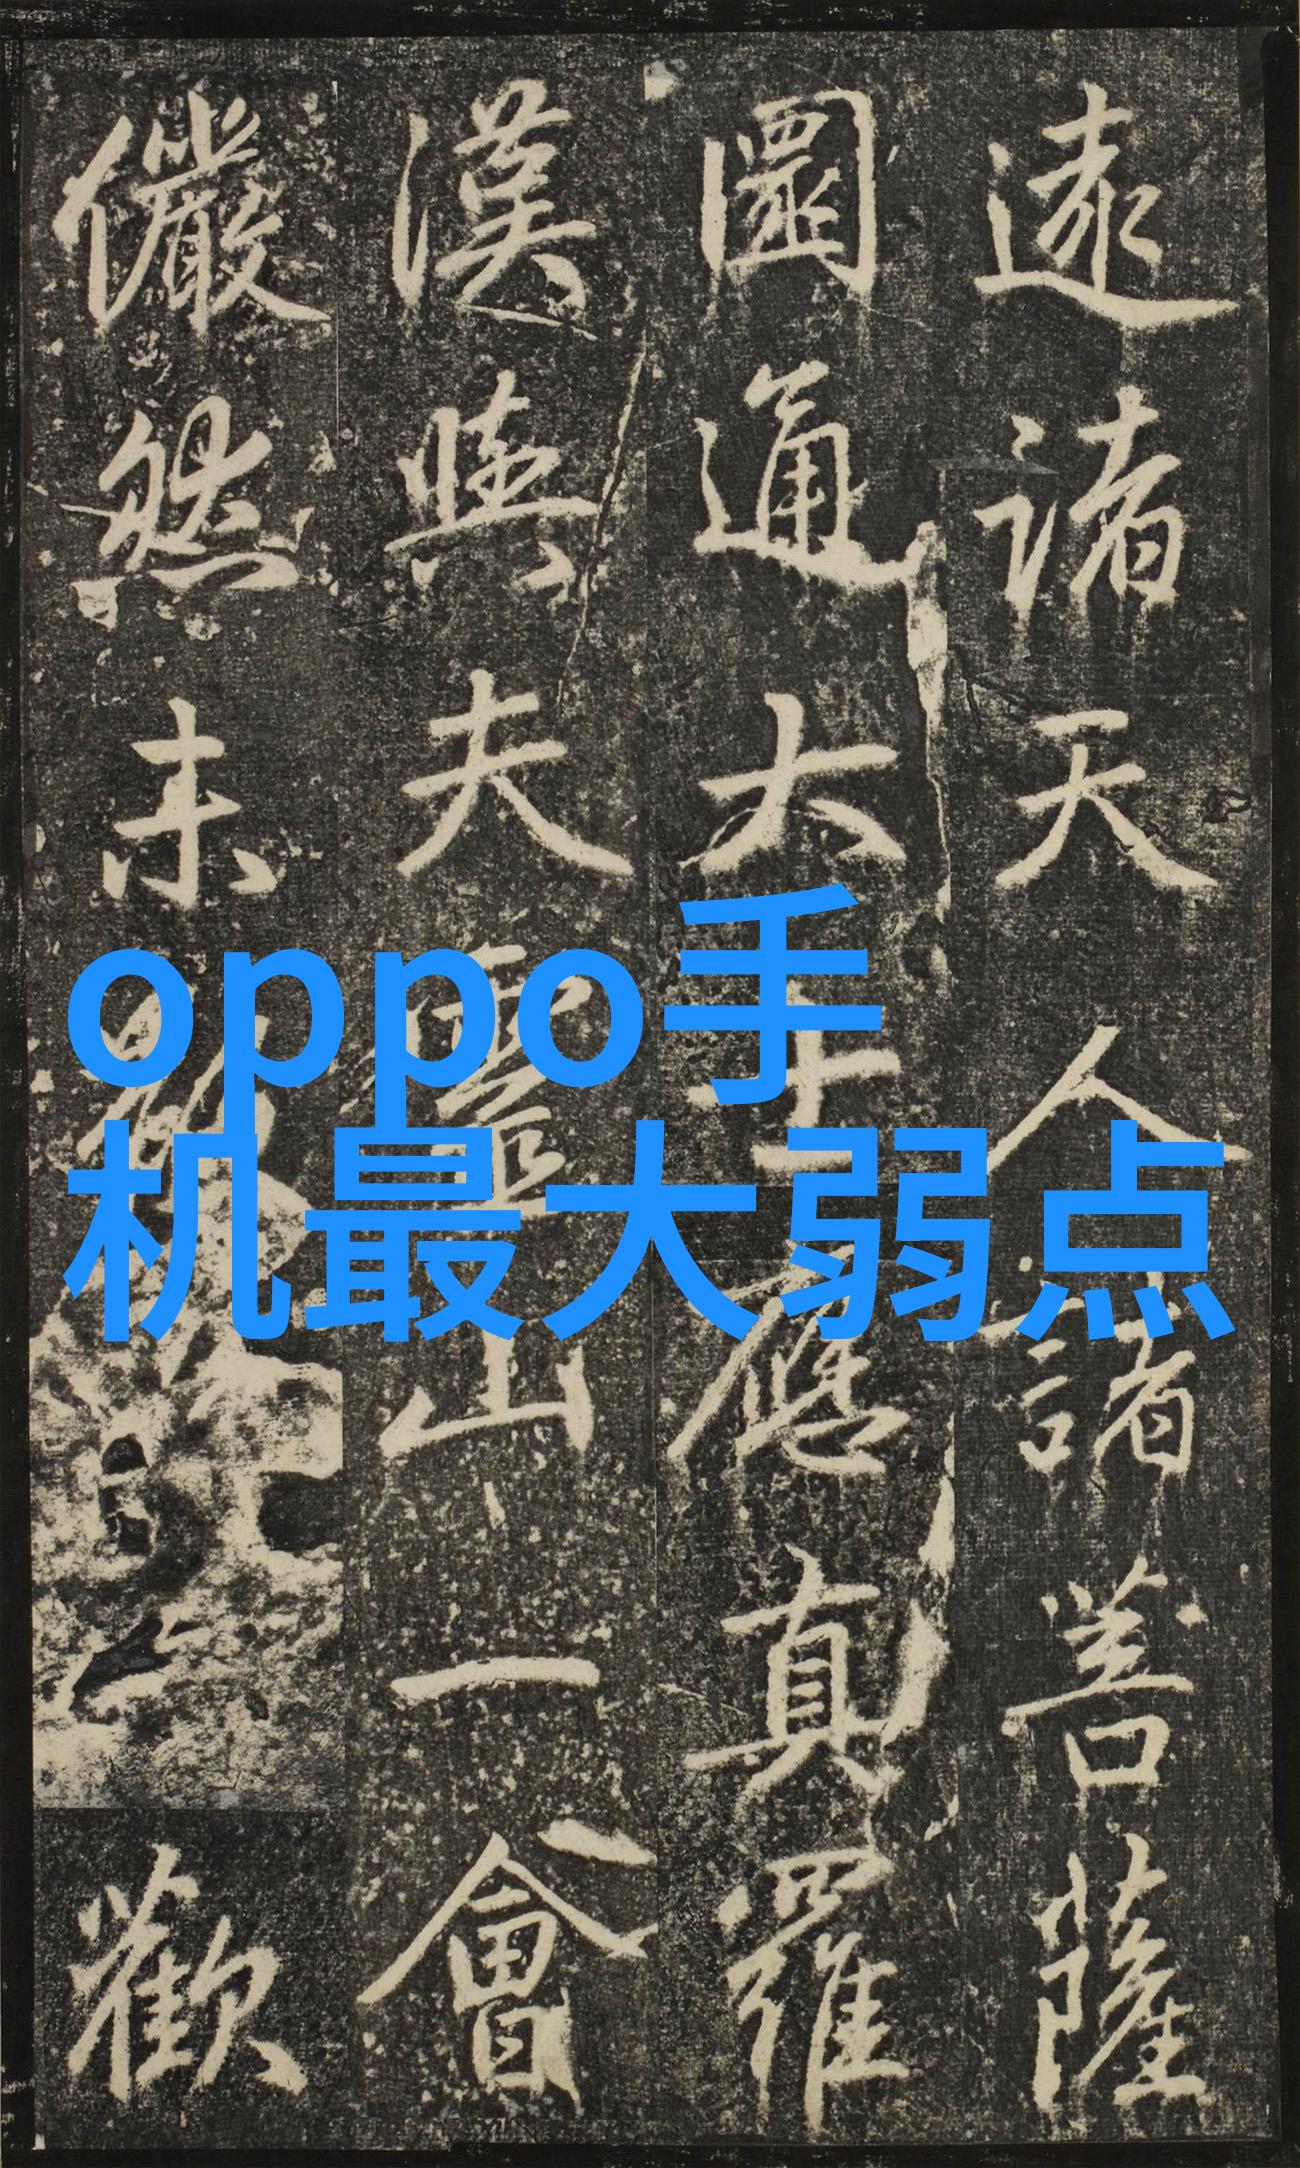 遠諸天人諸菩薩
圓通大士應真羅
漢與夫靈山一會
儼然未歡
oppo手
机最大弱点